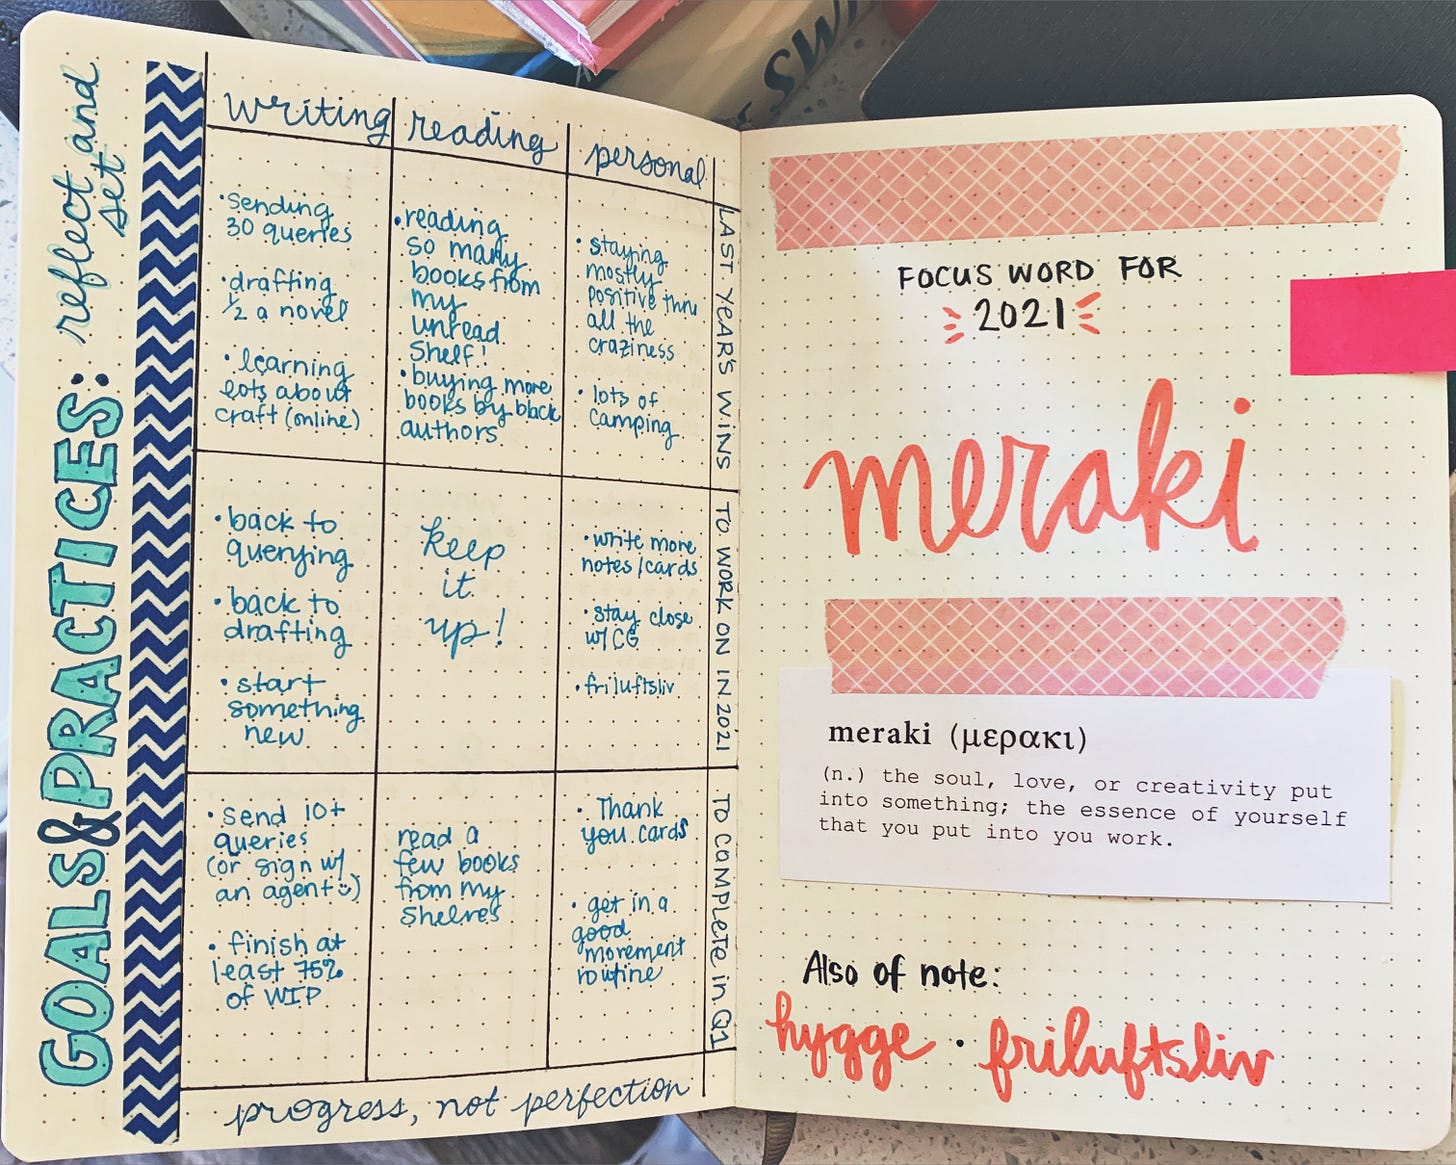 SWI
GOALS & PRACTICES:
reflect and
set
writing
reading
personal
LAST YEAR'S WINS
• sending
30 queries
• drafting
1/2 a novel
• learning
lots about
craft (online)
• reading
so many
books from
my
unread
shelf!
• buying more
books by black
authors
• staying
mostly
positive thru
all the
craziness
• lots of
camping
TO WORK ON IN 2021
• back to
querying
• back to
drafting
• start
something
new
keep
it
up!
• write more
notes/cards
• stay close
w/ CG
• friluftsliv
TO COMPLETE in Q1
• send 10+
queries
(or sign w/
an agent☺)
• finish at
least 75%
of WIP
read a
few books
from my
shelves
• Thank
you cards
• get in a
good
movement
routine
progress, not perfection
FOCUS WORD FOR
2021
meraki
meraki (μερακι)
(n.) the soul, love, or creativity put
into something; the essence of yourself
that you put into you work.
Also of note:
hygge • friluftsliv